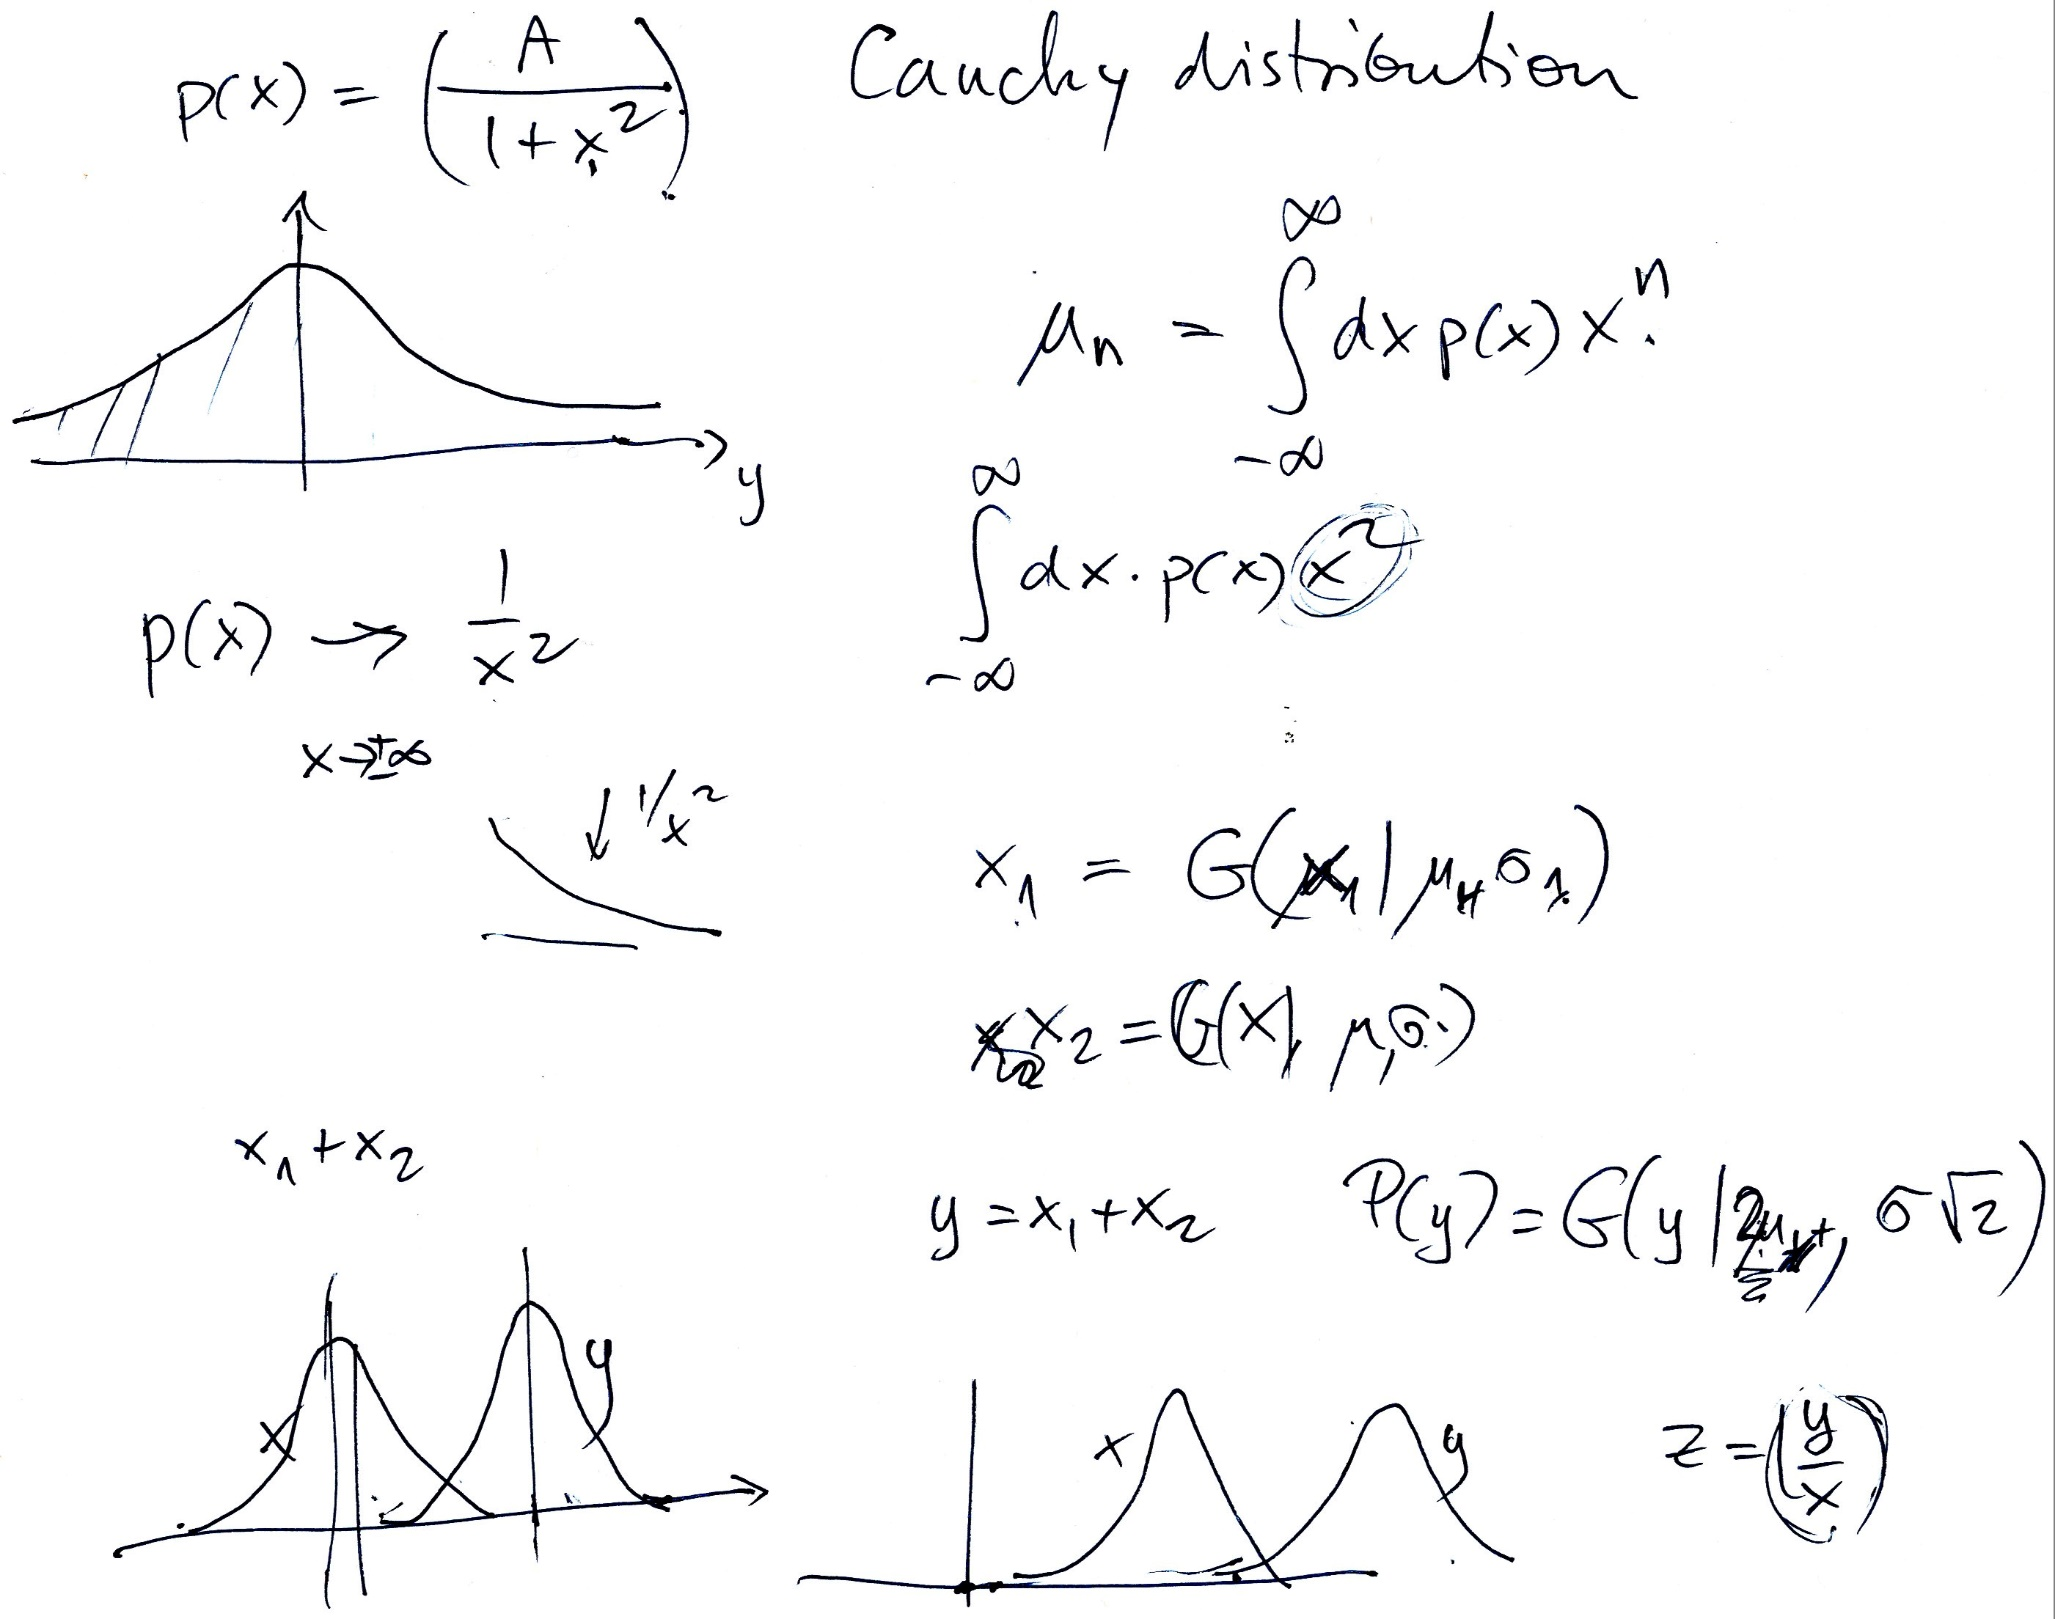 p(x) = (A / (1 + x²))
Cauchy distribution
μₙ = ∫_{-∞}^{∞} dx p(x) xⁿ
y
∫_{-∞}^{∞} dx · p(x) x²
p(x) → 1/x²
x → ±∞
↓ 1/x²
x₁ = G(x₁ | μ, σ₁)
x₂ = G(x | μ, σ)
x₁ + x₂
y = x₁ + x₂
P(y) = G(y | 2μ, σ√2)
x y
x y
z = (y/x)